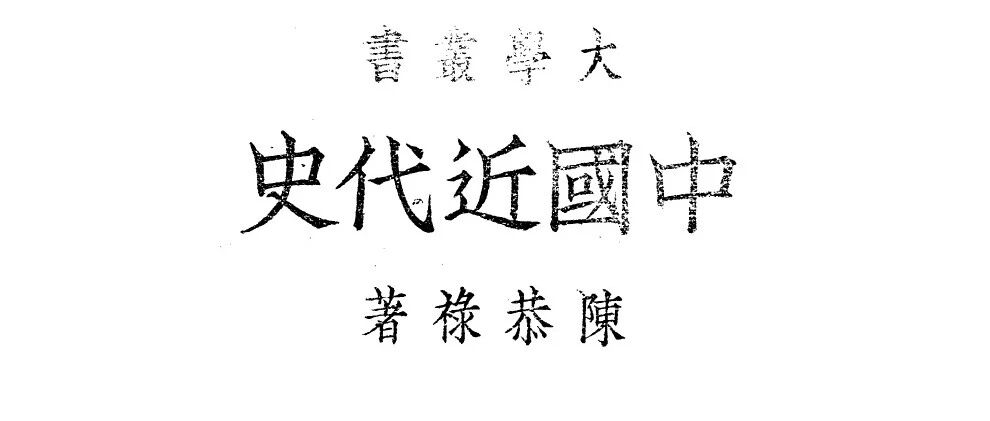 大學叢書
中國近代史
陳恭祿著